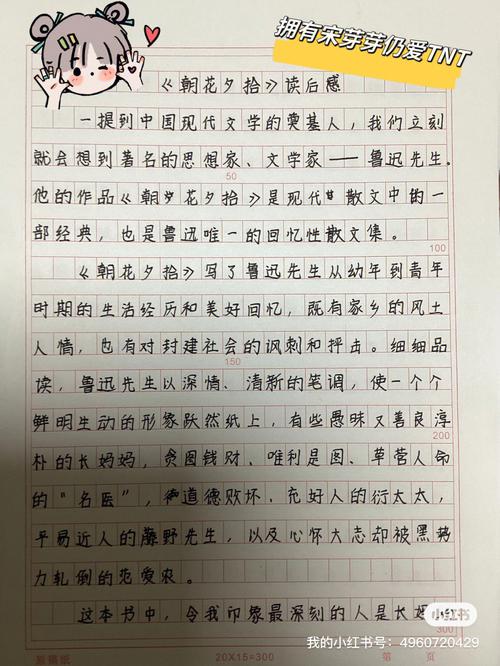 拥有宋芽芽仍爱TNT
《朝花夕拾》读后感
一提到中国现代文学的奠基人，我们立刻
就会想到著名的思想家、文学家——鲁迅先生。
50
他的作品《朝花夕拾》是现代散文中的一
部经典，也是鲁迅唯一的回忆性散文集。
100
《朝花夕拾》写了鲁迅先生从幼年到青年
时期的生活经历和美好回忆，既有家乡的风土
人情，也有对封建社会的讽刺和抨击。细细品
150
读，鲁迅先生以深情、清新的笔调，使一个个
鲜明生动的形象跃然纸上，有些愚昧又善良淳
200
朴的长妈妈，贪图钱财、唯利是图、草菅人命
的“名医”，道德败坏、充好人的衍太太，
平易近人的藤野先生，以及心怀大志却被黑势
力轧倒的范爱农。
这本书中，令我印象最深刻的人是长妈
小红书
300
我的小红书号：4960720429
20X15=300
第 页